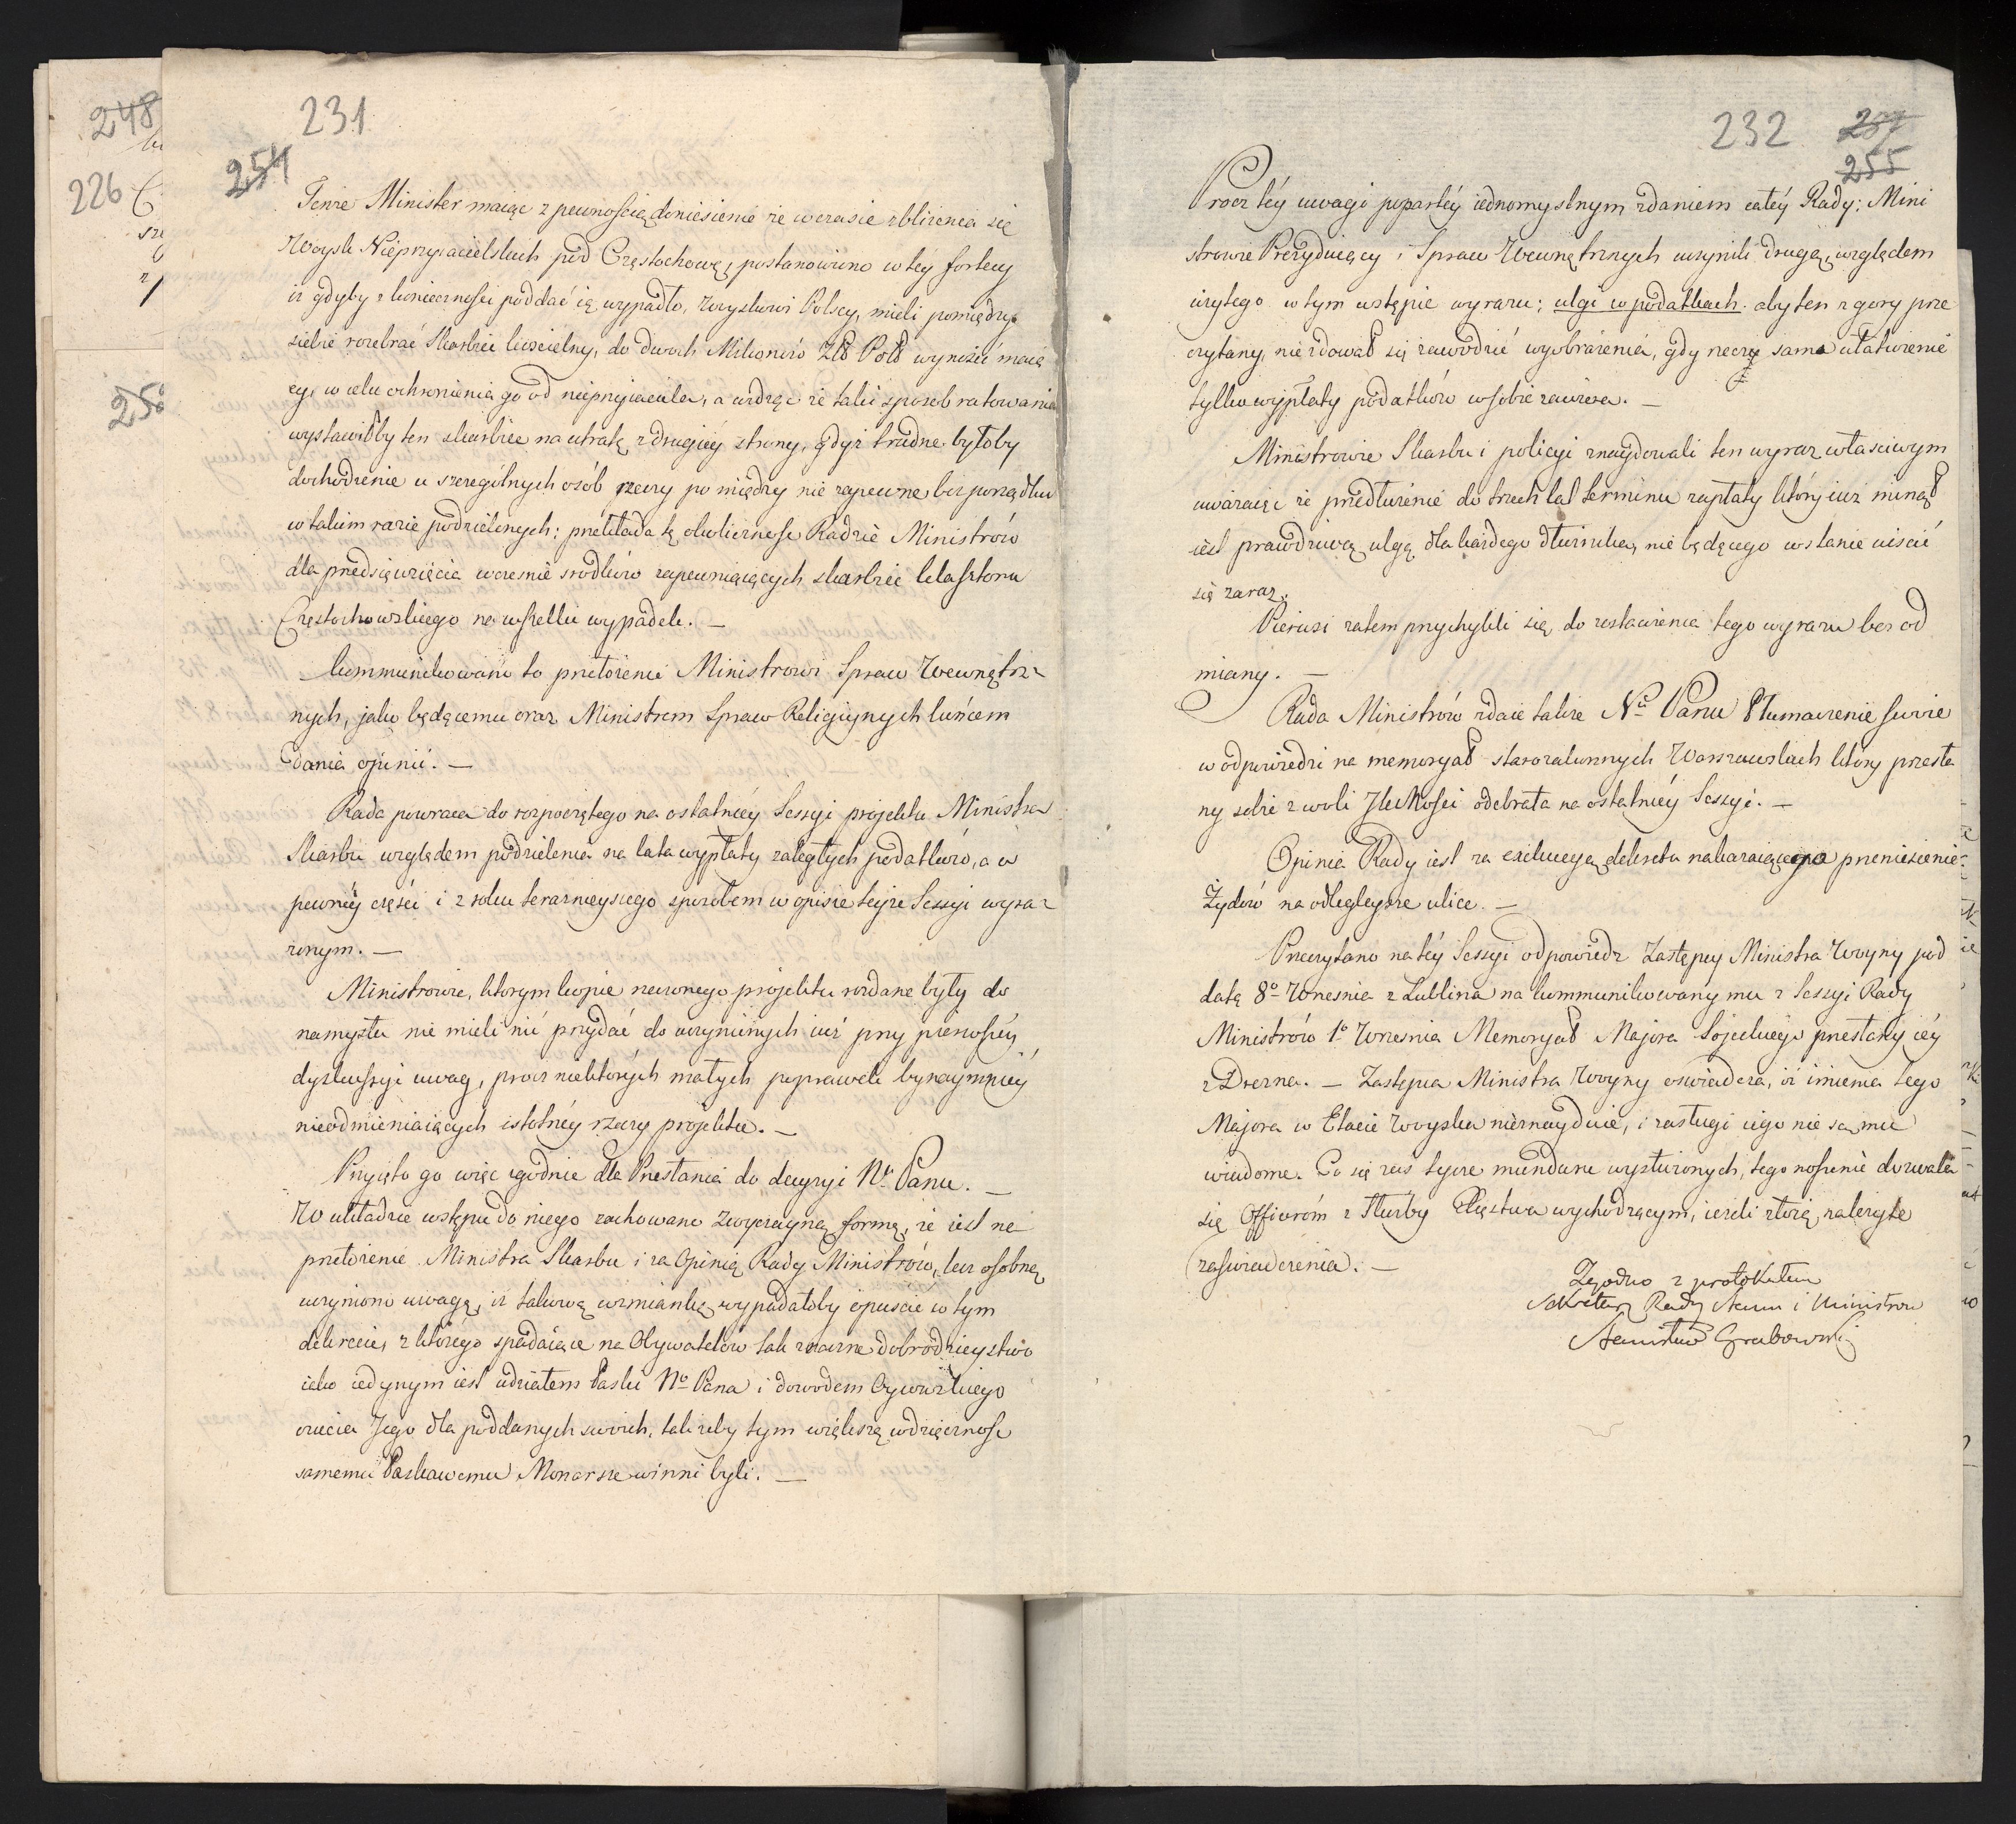 248
226
231
254
Tenże Minister maiąc z pewnością doniesienie że w czasie zbliżenia się
Woysk Nieprzyiacielskich pod Częstochowę, postanowiono w tey fortecy
iż gdyby z konieczności poddać ią wypadło, woyskowi Polscy, mieli pomiędzy
siebie rozebrać Skarbiec kościelny, do dwoch Milionów Złł Poll wynosić maią
cy, w celu ochronienia go od nieprzyiaciela, a widząc że taki sposob ratowania
wystawiłby ten skarbiec na utratę z drugiéy strony, gdyż trudne byłoby
dochodzenie u szczególnych osób rzeczy pomiędzy nie zapewne bez porządku
w takim razie podzielonych; przekłada tę okoliczność Radzie Ministrów
dla przedsięwzięcia wcześnie srodków zapewniaiących skarbiec klasztoru
Częstochowskiego na wszelki wypadek. —
Kommunikowano to przełożenie Ministrowi Spraw Wewnętrz-
nych, jako będącemu oraz Ministrem Spraw Religiynych końcem
dania opinii. —
Rada powraca do rozpoczętego na ostatniéy Sessyi projektu Ministra
Skarbu względem podzielenia na lata wypłaty zaległych podatków, a w
pewnéy części i z roku teraznieyszego sposobem w opisie teyże Sessyi wyra-
żonym. —
Ministrowie, ktorym kopie rzeczonego projektu rozdane były do
namysłu nie mieli nic przydać do uczynionych iuż przy pierwszéy
dyskussyi uwag, procz niektórych małych poprawek bynaymniéy
nieodmieniaiących istotnéy rzeczy projektu. —
Przyięto go więc zgodnie dla Przesłania do decyzyi Nu Panu. —
W układzie wstępu do niego zachowano zwyczayną formę, że iest na
przełożenie Ministra Skarbu i za Opinią Rady Ministrów, lecz osobną
uczyniono uwagę, iż takową wzmiankę wypadałoby opuścić w tym
dekrecie, z którego spadaiące na Obywatelów tak znaczne dobrodzieystwo
iako iedynym iest udziałem Łaski No Pana i dowodem Oycowskiego
czucia Jego dla poddanych swoich, tak żeby tym większą wdzięczność
samemu Łaskawemu Monarsze winni byli. —
232
257
255
Procz téy uwagi popartéy iednomyslnym zdaniem całéy Rady; Mini
strowie Prezyduiący i Spraw Wewnętrznych uczynili drugą, względem
użytego w tym wstępie wyrazu; ulgi w podatkach. aby ten z gory prze
czytany, nie zdował się zawodzić wyobrażenia, gdy rzeczy samo ułatwienie
tylko wypłaty podatków w sobie zawiera. —
Ministrowie Skarbu i policyi znaydowali ten wyraz własciwym
uważaiąc że przedłużenie do trzech lat terminu zapłaty który iuż minął
iest prawdziwą ulgą dla każdego dłużnika, nie będącego w stanie uiscić
się zaraz.
Pierwsi zatem przychylili się do zostawienia tego wyrazu bez od
miany. —
Rada Ministrów zdaie także Nu Panu tłumaczenie swoie
w odpowiedzi na memoryał starozakonnych Warszawskich który przesła
ny sobie z woli JKMości odebrała na ostatniéy Sessyi. —
Opinia Rady iest za exekucyą dekretu nakazuiącego przeniesienie
Żydów na odlegleysze ulice. —
Przeczytano na téy Sessyi odpowiedz Zastępcy Ministra Woyny pod
datą 8o Wrzesnia z Lublina na kommunikowany mu z Sessyi Rady
Ministrów 1o Wrzesnia Memoryał Majora Sojeckiego przesłany iéy
z Drezna. — Zastępca Ministra Woyny oswiadcza, iż imienia tego
Majora w Etacie Woyska nieznayduie, i zasługi iego nie są mu
wiadome. Co się zas tycze munduru wysłużonych, tego noszenie dozwala
się Officerom z Służby Xięstwa wychodzącym, ieżeli złożą, należyte
zaswiadczenia. —
Zgodno z protokułem
Sekretarz Rady Stanu i Ministrow
Stanisław Grabowski